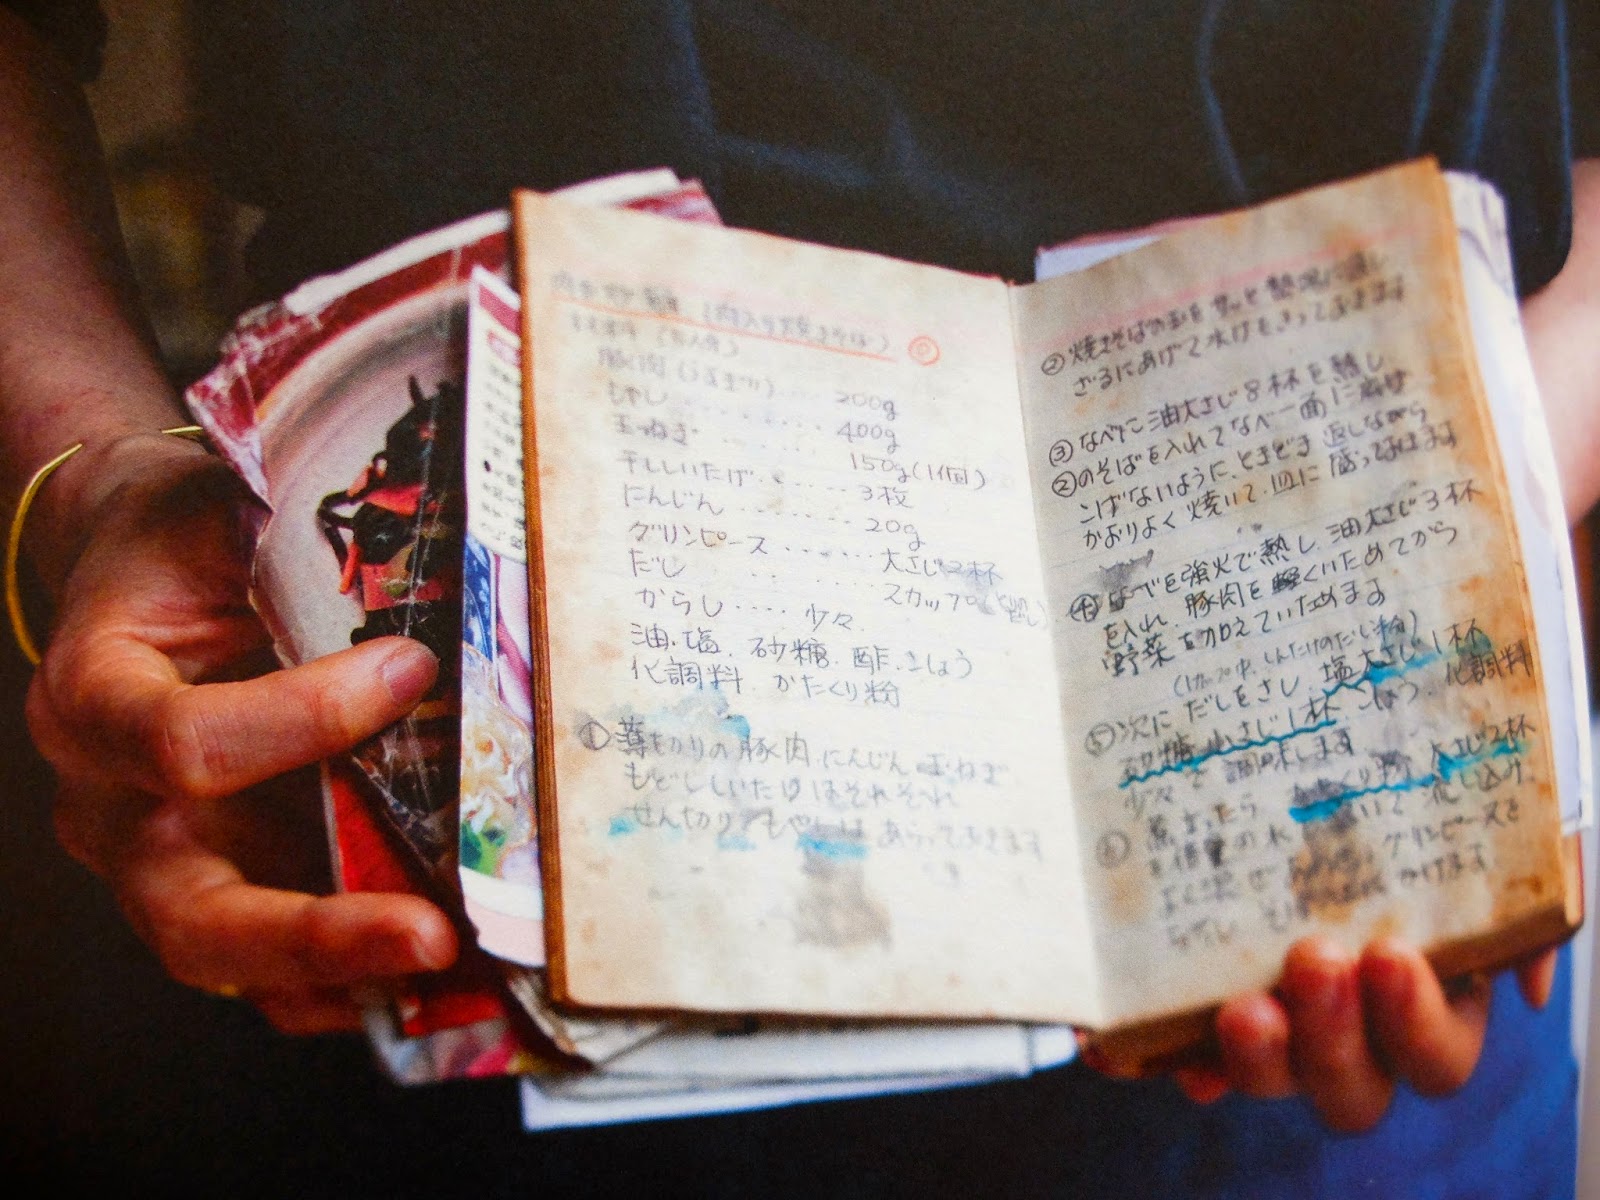 肉絲炒麺 (肉入り焼きそば)
材料 (五人分)
豚肉(うす切り).... 200g
もやし ....... 400g
玉ねぎ ...... 150g(1個)
干ししいたけ ..... 3枚
にんじん ........ 20g
グリンピース ...... 大さじ2杯
だし ........ 2カップ
からし .... 少々
油.塩.砂糖.酢.こしょう
化調料.かたくり粉
① 薄切りの豚肉.にんじん 玉ねぎ
もどししいたけはそれぞれ
せん切り もやしは あらっておきます
② 焼きそばの玉をサッと熱湯に通し
ざるにあげて水けをきっておきます
③ なべに油大さじ8杯を熱し
②のそばを入れてなべ一面に広げ
こげないように、ときどき 返しながら
かおりよく焼いて.皿に盛っておきます
④ なべを強火で熱し、油大さじ3杯
を入れ、豚肉を軽くいためてから
野菜を加えていためます
(1カップ中、しいたけのだし 粉)
⑤ 次にだしをさし、塩大さじ1杯
砂糖小さじ1杯.こしょう.化調料
少々で調味します
⑥ 煮立ったら かたくり粉 大さじ2杯
を倍量の水 いて流し込み
グリンピースを
かけます